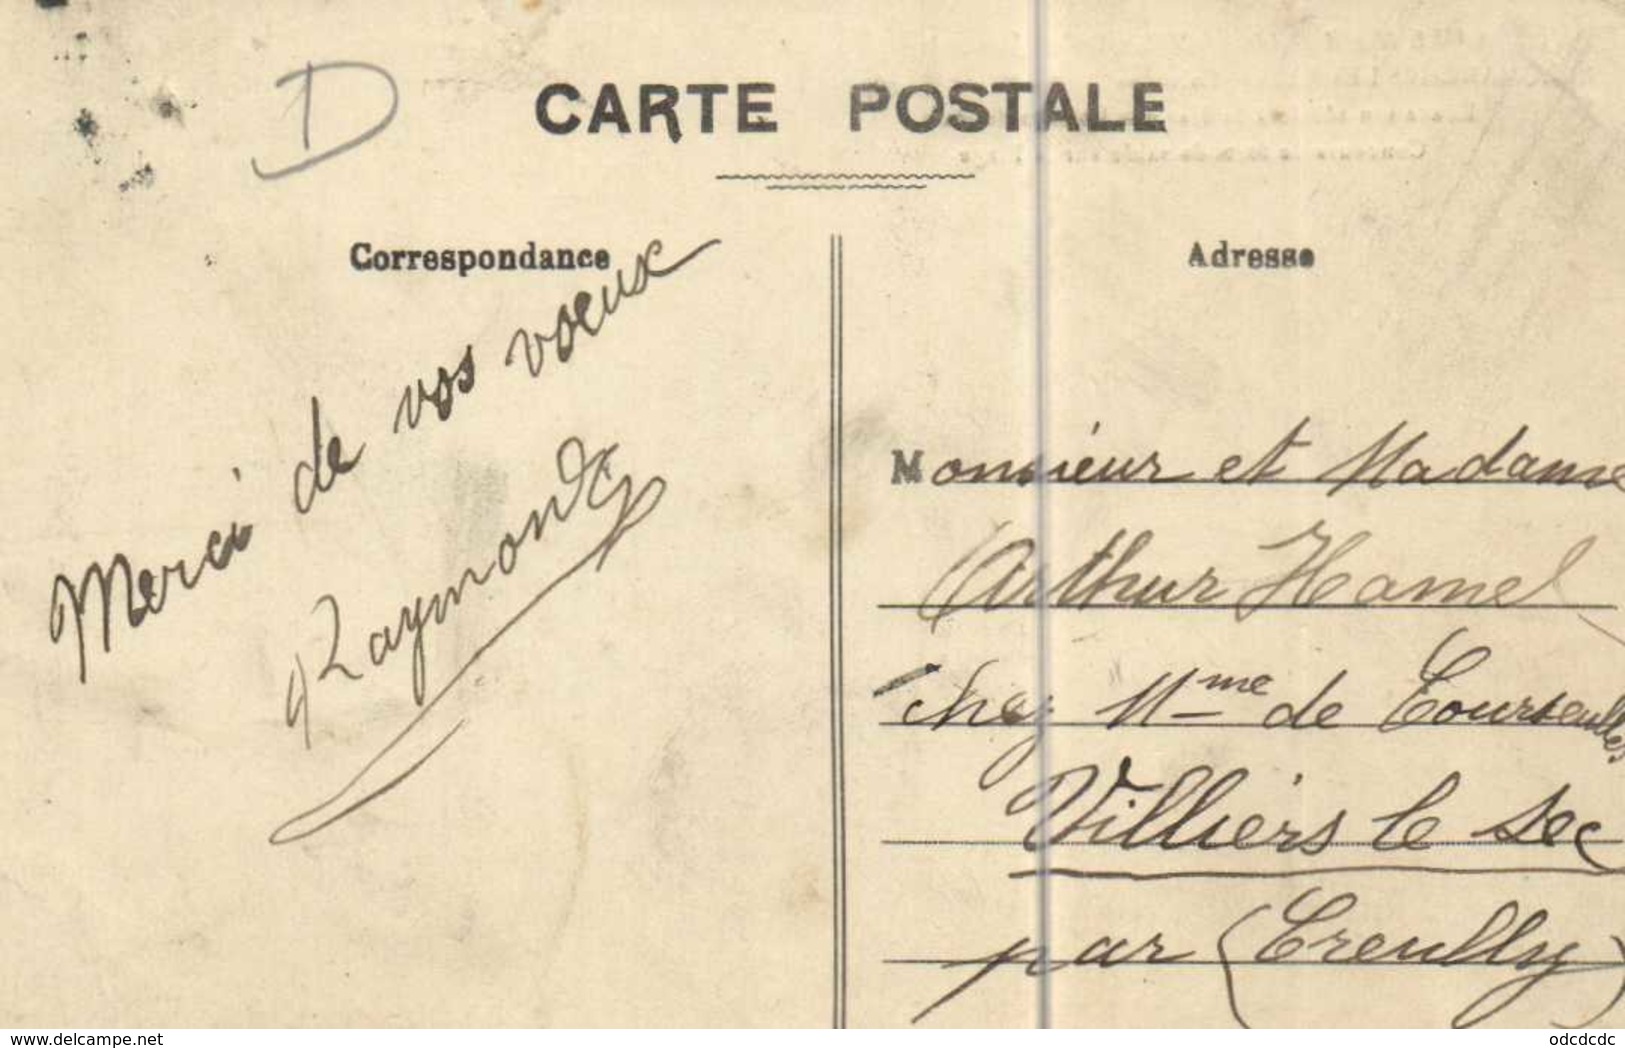 D
CARTE POSTALE
Correspondance
Merci de vos voeux
Raymond
Adresse
Monsieur et Madame
Arthur Hamel
chez Mme de Courseulles
Villiers le Sec
par (Creully)
www.delcampe.net
odcdcdc